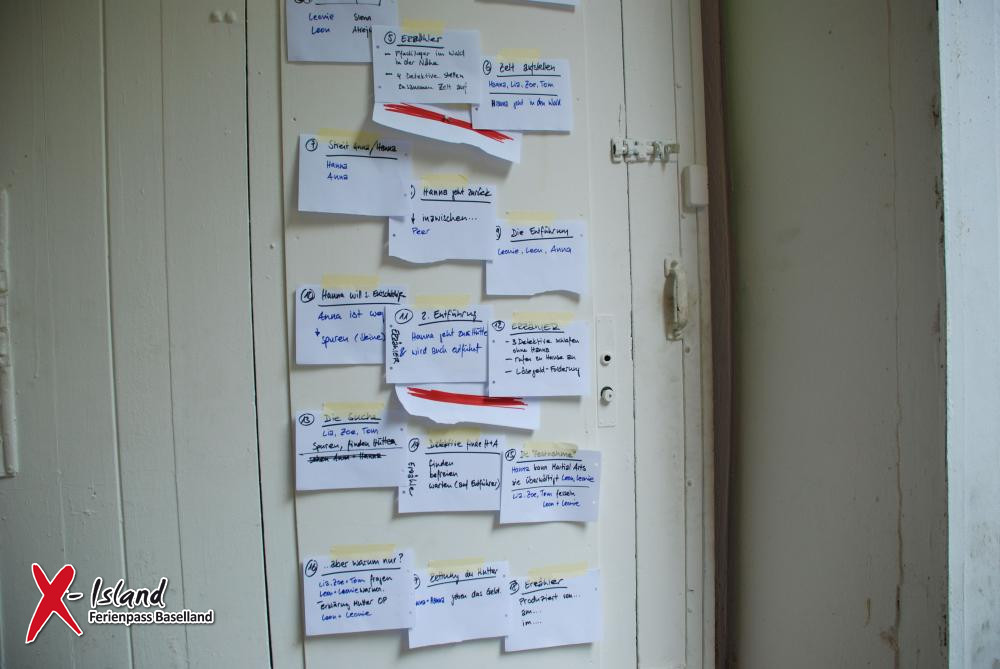 Leonie Siena
Leon
5 Erzähler
- Pfadilager im Wald
in der Nähe
- 4 Detektive stellen
zusammen Zelt auf
6 Zelt aufstellen
Hanna, Liz, Zoe, Tom
Hanna geht in den Wald
7 Streit Anna/Hanna
Hanna
Anna
Hanna geht zurück
↓ inzwischen...
Peer
9 Die Entführung
Leonie, Leon, Anna
10 Hanna will s.
Anna ist weg
↓
Spuren (Steine)
11 2. Entführung
Hanna geht zur Hütte
& wird auch entführt
ERZÄHLER
12 ERZÄHLER
- 3 Detektive schlafen
ohne Hanna
- rufen zu Hause an
- Lösegeld-Forderung
13 Die Suche
Liz, Zoe, Tom
Spuren, finden Hütte
sehen Anna + Hanna
14 Detektive finde H+A
finden
befreien
warten (auf Entführer)
Erzähler
15 Die "Festnahme"
Hanna kann Martial Arts
sie überwältigt Leon, Leonie
Liz, Zoe, Tom fesseln
Leon + Leonie
16 ..aber warum nur?
Liz, Zoe + Tom fragen
Leon + Leonie warum.
Erklärung Mutter OP
Leon + Leonie
Rettung der Mutter
geben das Geld.
18 Erzähler
Produziert von...
am...
im...
X-Island
Ferienpass Baselland